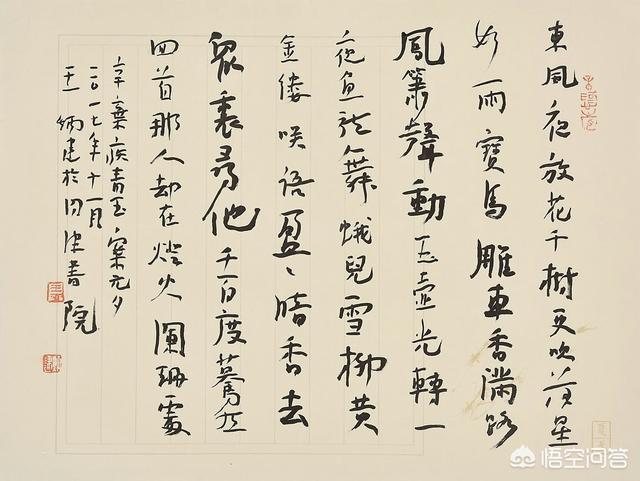 東風夜放花千樹更吹落星
如雨寶馬雕車香滿路
鳳簫聲動玉壺光轉一
夜魚龍舞蛾兒雪柳黃
金縷咲語盈〻暗香去
眾裏尋他千百度驀然
回首那人却在燈火闌珊處
辛棄疾青玉案元夕
二〇一七年十一月
炳建於津書院
悟空问答